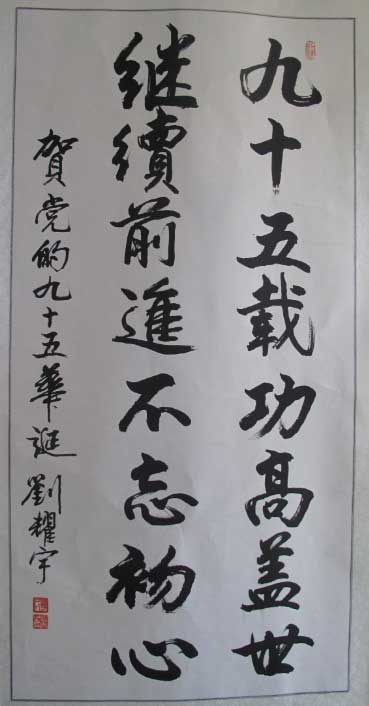 九十五载功高盖世
继續前進不忘初心
賀党的九十五華诞 劉耀宇